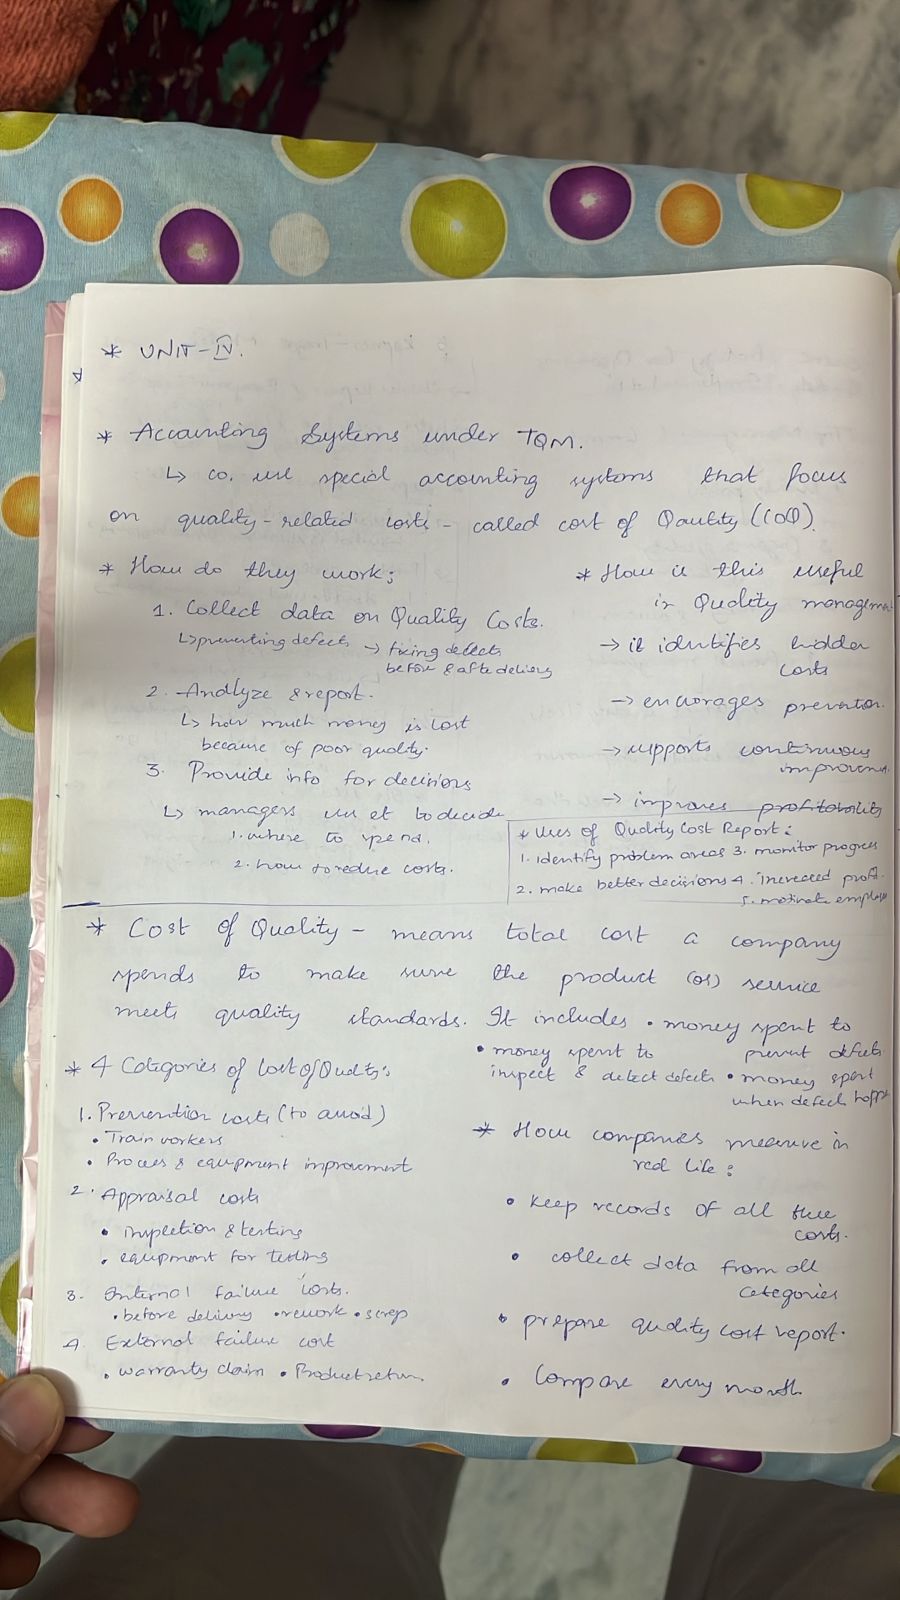 * UNIT-IV.
*
* Accounting Systems under TQM.
↳ co. use special accounting systems that focus
on quality-related costs - called cost of Qautity (COQ).
* How do they work:
1. Collect data on Quality Costs.
↳ preventing defects → fixing defects
before & after delivery
2. Analyze & report.
↳ how much money is lost
because of poor quality.
3. Provide info for decisions
↳ managers use et to decide
1. where to spend.
2. how to reduce costs.
* How is this useful
in Quality managemen
→ it identifies hidden
costs
→ encorages prevention.
→ supports continuous
improvement.
→ improves profitability
* Uses of Quality Cost Report:
1. identify problem areas 3. monitor progress
2. make better decisions 4. increased profit.
5. motivate employe
* Cost of Quality - means total cost a company
spends to make sure the product (or) service
meets quality standards. It includes • money spent to
prevent defects
• money spent to
inspect & detect defects • money spent
when defects happ
* 4 Categories of Cost of Quality:
1. Prevention costs (to avoid)
• Train workers
• Process & equipment improvement
2. Appraisal costs
• inspection & testing
• equipment for testing
3. Internal failure costs.
• before delivery • rework • scrap
4. External failure cost
• warranty claim • Product return
* How companies measure in
real life:
• Keep records of all these
costs.
• collect data from all
categories
• prepare quality cost report.
• Compare every month